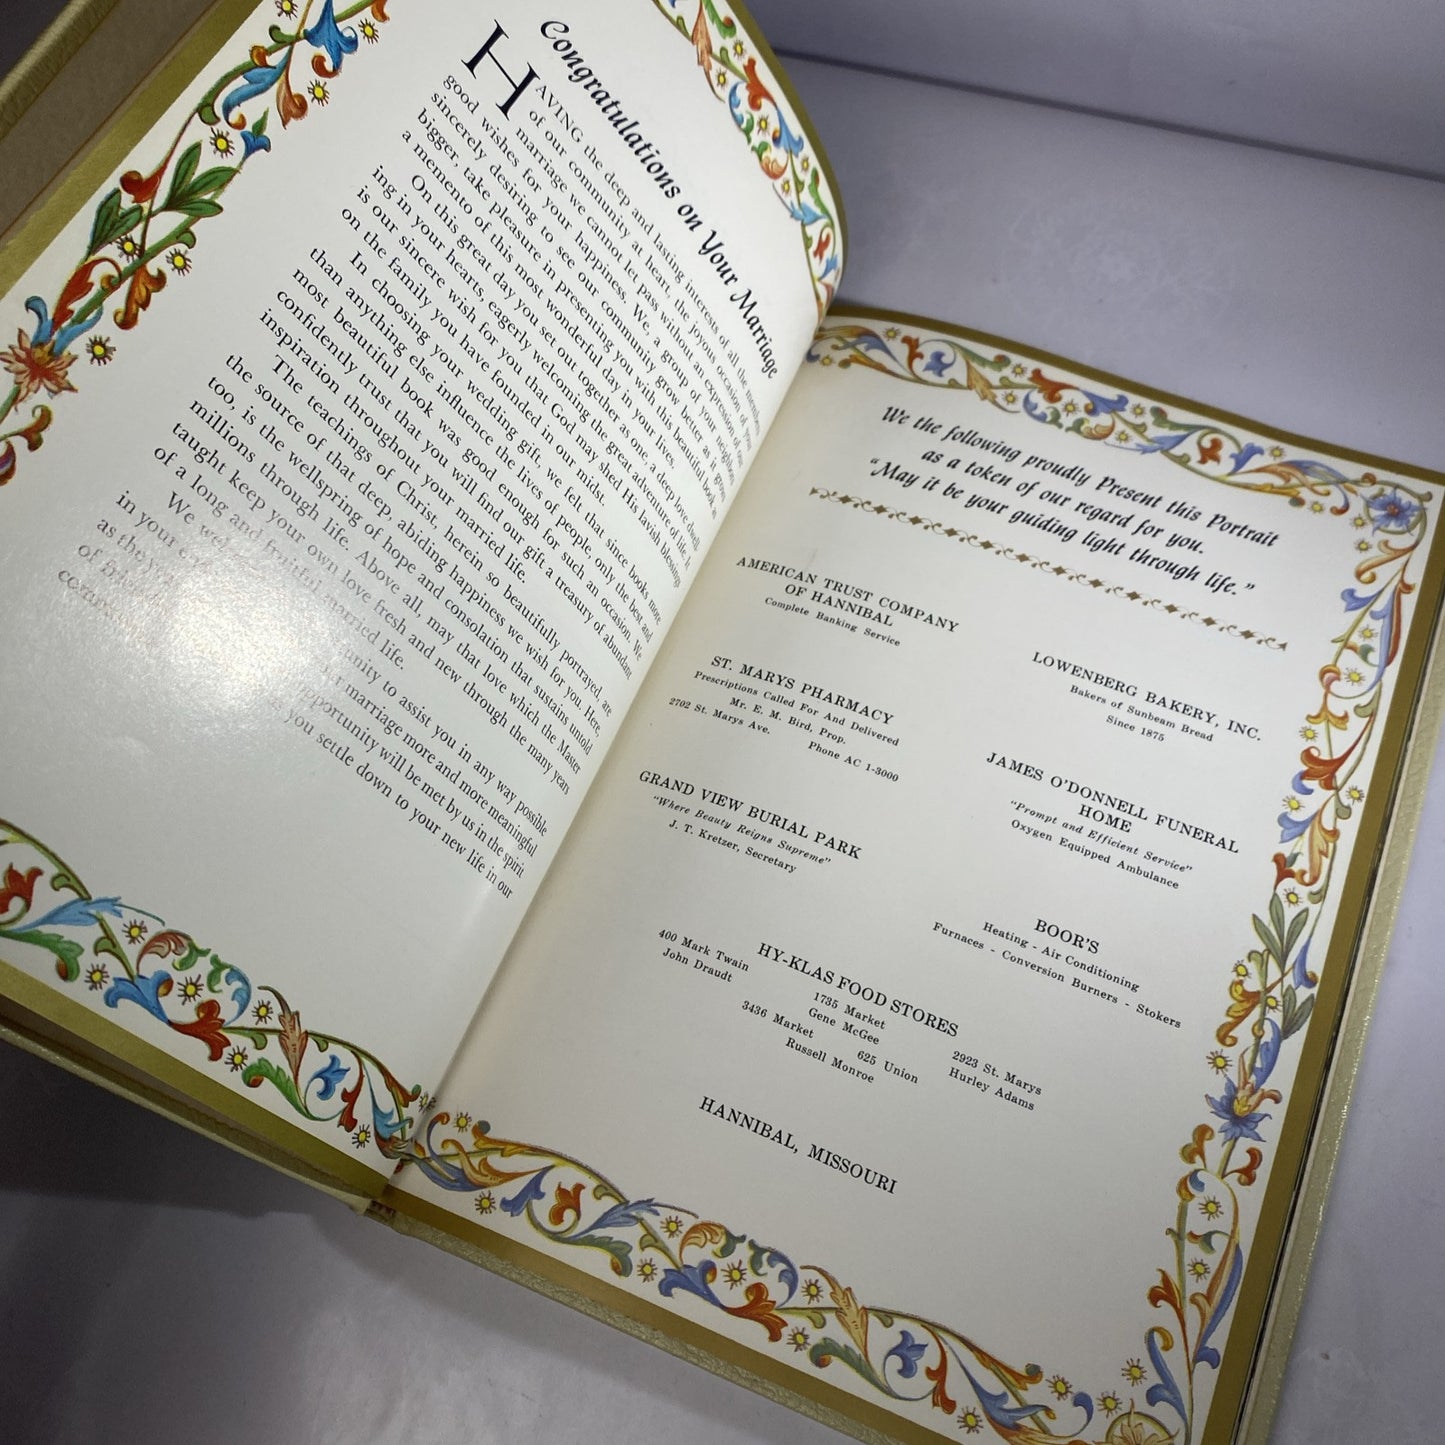 Congratulations on Your Marriage
HAVING the deep and lasting interests of all the members
of our community at heart, the joyous occasion of your
marriage we cannot let pass without an expression of our
good wishes for your happiness. We, a group of your neighbors
sincerely desiring to see our community grow better as it grows
bigger, take pleasure in presenting you with this beautiful book, as
a memento of this most wonderful day in your lives.
On this great day you set out together as one, a deep love dwell-
ing in your hearts, eagerly welcoming the great adventure of life. It
is our sincere wish for you that God may shed His lavish blessings
on the family you have founded in our midst.
In choosing your wedding gift, we felt that since books more
than anything else influence the lives of people, only the best and
most beautiful book was good enough for such an occasion. We
confidently trust that you will find our gift a treasury of abundant
inspiration throughout your married life.
The teachings of Christ, herein so beautifully portrayed, are
the source of that deep, abiding happiness we wish for you. Here,
too, is the wellspring of hope and consolation that sustains untold
millions through life. Above all, may that love which the Master
taught keep your own love fresh and new through the many years
of a long and fruitful married life.
We unity to assist you in any way possible
in your marriage more and more meaningful
as the opportunity will be met by us in the spirit
of as you settle down to your new life in our
We the following proudly Present this Portrait
as a token of our regard for you.
"May it be your guiding light through life."
AMERICAN TRUST COMPANY
OF HANNIBAL
Complete Banking Service
LOWENBERG BAKERY, INC.
Bakers of Sunbeam Bread
Since 1875
ST. MARYS PHARMACY
Prescriptions Called For And Delivered
Mr. E. M. Bird, Prop.
2702 St. Marys Ave. Phone AC 1-3000
JAMES O'DONNELL FUNERAL
HOME
"Prompt and Efficient Service"
Oxygen Equipped Ambulance
GRAND VIEW BURIAL PARK
"Where Beauty Reigns Supreme"
J. T. Kretzer, Secretary
BOOR'S
Heating - Air Conditioning
Furnaces - Conversion Burners - Stokers
HY-KLAS FOOD STORES
400 Mark Twain 1735 Market 2923 St. Marys
John Draudt Gene McGee Hurley Adams
3436 Market 625 Union
Russell Monroe
HANNIBAL, MISSOURI